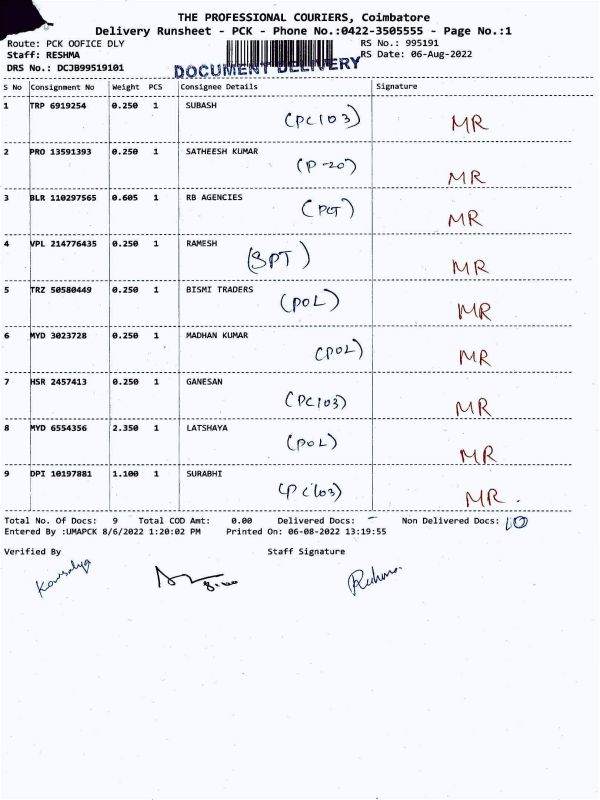 THE PROFESSIONAL COURIERS, Coimbatore
Delivery Runsheet - PCK - Phone No.:0422-3505555 - Page No.:1
Route: PCK OOFICE DLY RS No.: 995191
Staff: RESHMA RS Date: 06-Aug-2022
DRS No.: DCJB99519101 DOCUMENT DELIVERY
S No Consignment No Weight PCS Consignee Details Signature
1 TRP 6919254 0.250 1 SUBASH
(PC103) MR
2 PRO 13591393 0.250 1 SATHEESH KUMAR
(P-20) MR
3 BLR 110297565 0.605 1 RB AGENCIES
(PCT) MR
4 VPL 214776435 0.250 1 RAMESH
(SPT) MR
5 TRZ 50580449 0.250 1 BISMI TRADERS
(POL) MR
6 MYD 3023728 0.250 1 MADHAN KUMAR
(POL) MR
7 HSR 2457413 0.250 1 GANESAN
(PC103) MR
8 MYD 6554356 2.350 1 LATSHAYA
(POL) MR
9 DPI 10197881 1.100 1 SURABHI
(PC103) MR.
Total No. Of Docs: 9 Total COD Amt: 0.00 Delivered Docs: - Non Delivered Docs: 10
Entered By :UMAPCK 8/6/2022 1:20:02 PM Printed On: 06-08-2022 13:19:55
Verified By Staff Signature